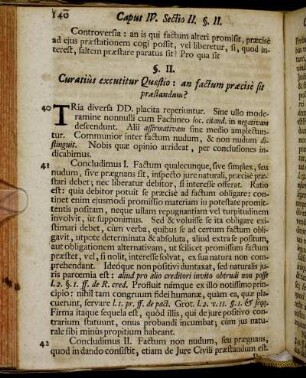 140 Caput IV. Sectio II. §. II.
Controversa: an is qui factum alteri promisit, præcisè
ad ejus præstationem cogi possit, vel liberetur, si, quod in-
terest, saltem præstare paratus sit? Pro qua sit
§. II.
Curatius excutitur Quæstio: an factum præcisè sit
præstandum?
40 TRia diversa DD. placita reperiuntur. Sine ullo mode-
ramine nonnulli cum Fachineo loc. citand. in negativam
descendunt. Alii affirmativam sine medio amplectun-
tur. Communior inter factum nudum, & non nudum di-
stinguit. Nobis quæ opinio arrideat, per conclusiones in-
dicabimus.
41 Concludimus I. Factum qualecunque, sive simplex, seu
nudum, sive prægnans sit, inspecto jure naturali, præcisè præ-
stari debet; nec liberatur debitor, si interesse offerat. Ratio
est: quia debitor potuit se præcisè ad factum obligare: con-
tinet enim ejusmodi promissio materiam in potestate promit-
tentis positam, neque ullam repugnantiam vel turpitudinem
involvit, ut supponimus. Sed & voluisse se ita obligare exi-
stimari debet, cùm verba, quibus se ad certum factum obli-
gavit, utpote determinata & absoluta, aliud extra se positum,
aut obligationem alternativam, ut scilicet promissum factum
præstet, vel, si nolit, interesse solvat, ex sua natura non com-
prehendant. Ideoque non positivi duntaxat, sed naturalis ju-
ris parœmia est: aliud pro alio creditori invito obtrudi non posse
l. 2. §. 1. ff. de R. cred. Profluit námque ex illo notissimo prin-
cipio: nihil tam congruum fidei humanæ, quàm ea, quæ pla-
cuerunt, servare l. 1. pr. ff. de pact. Grot. l. 2. c. 11. §. 1. & seqq.
Firma itaque sequela est, quòd illis, qui de jure positivo con-
trarium statuunt, onus probandi incumbat; cùm jus natura-
le sibi minùs propitium habeant.
42 Concludimus II. Factum non nudum, seu prægnans,
quod in dando consistit, etiam de Jure Civili præstandum est.